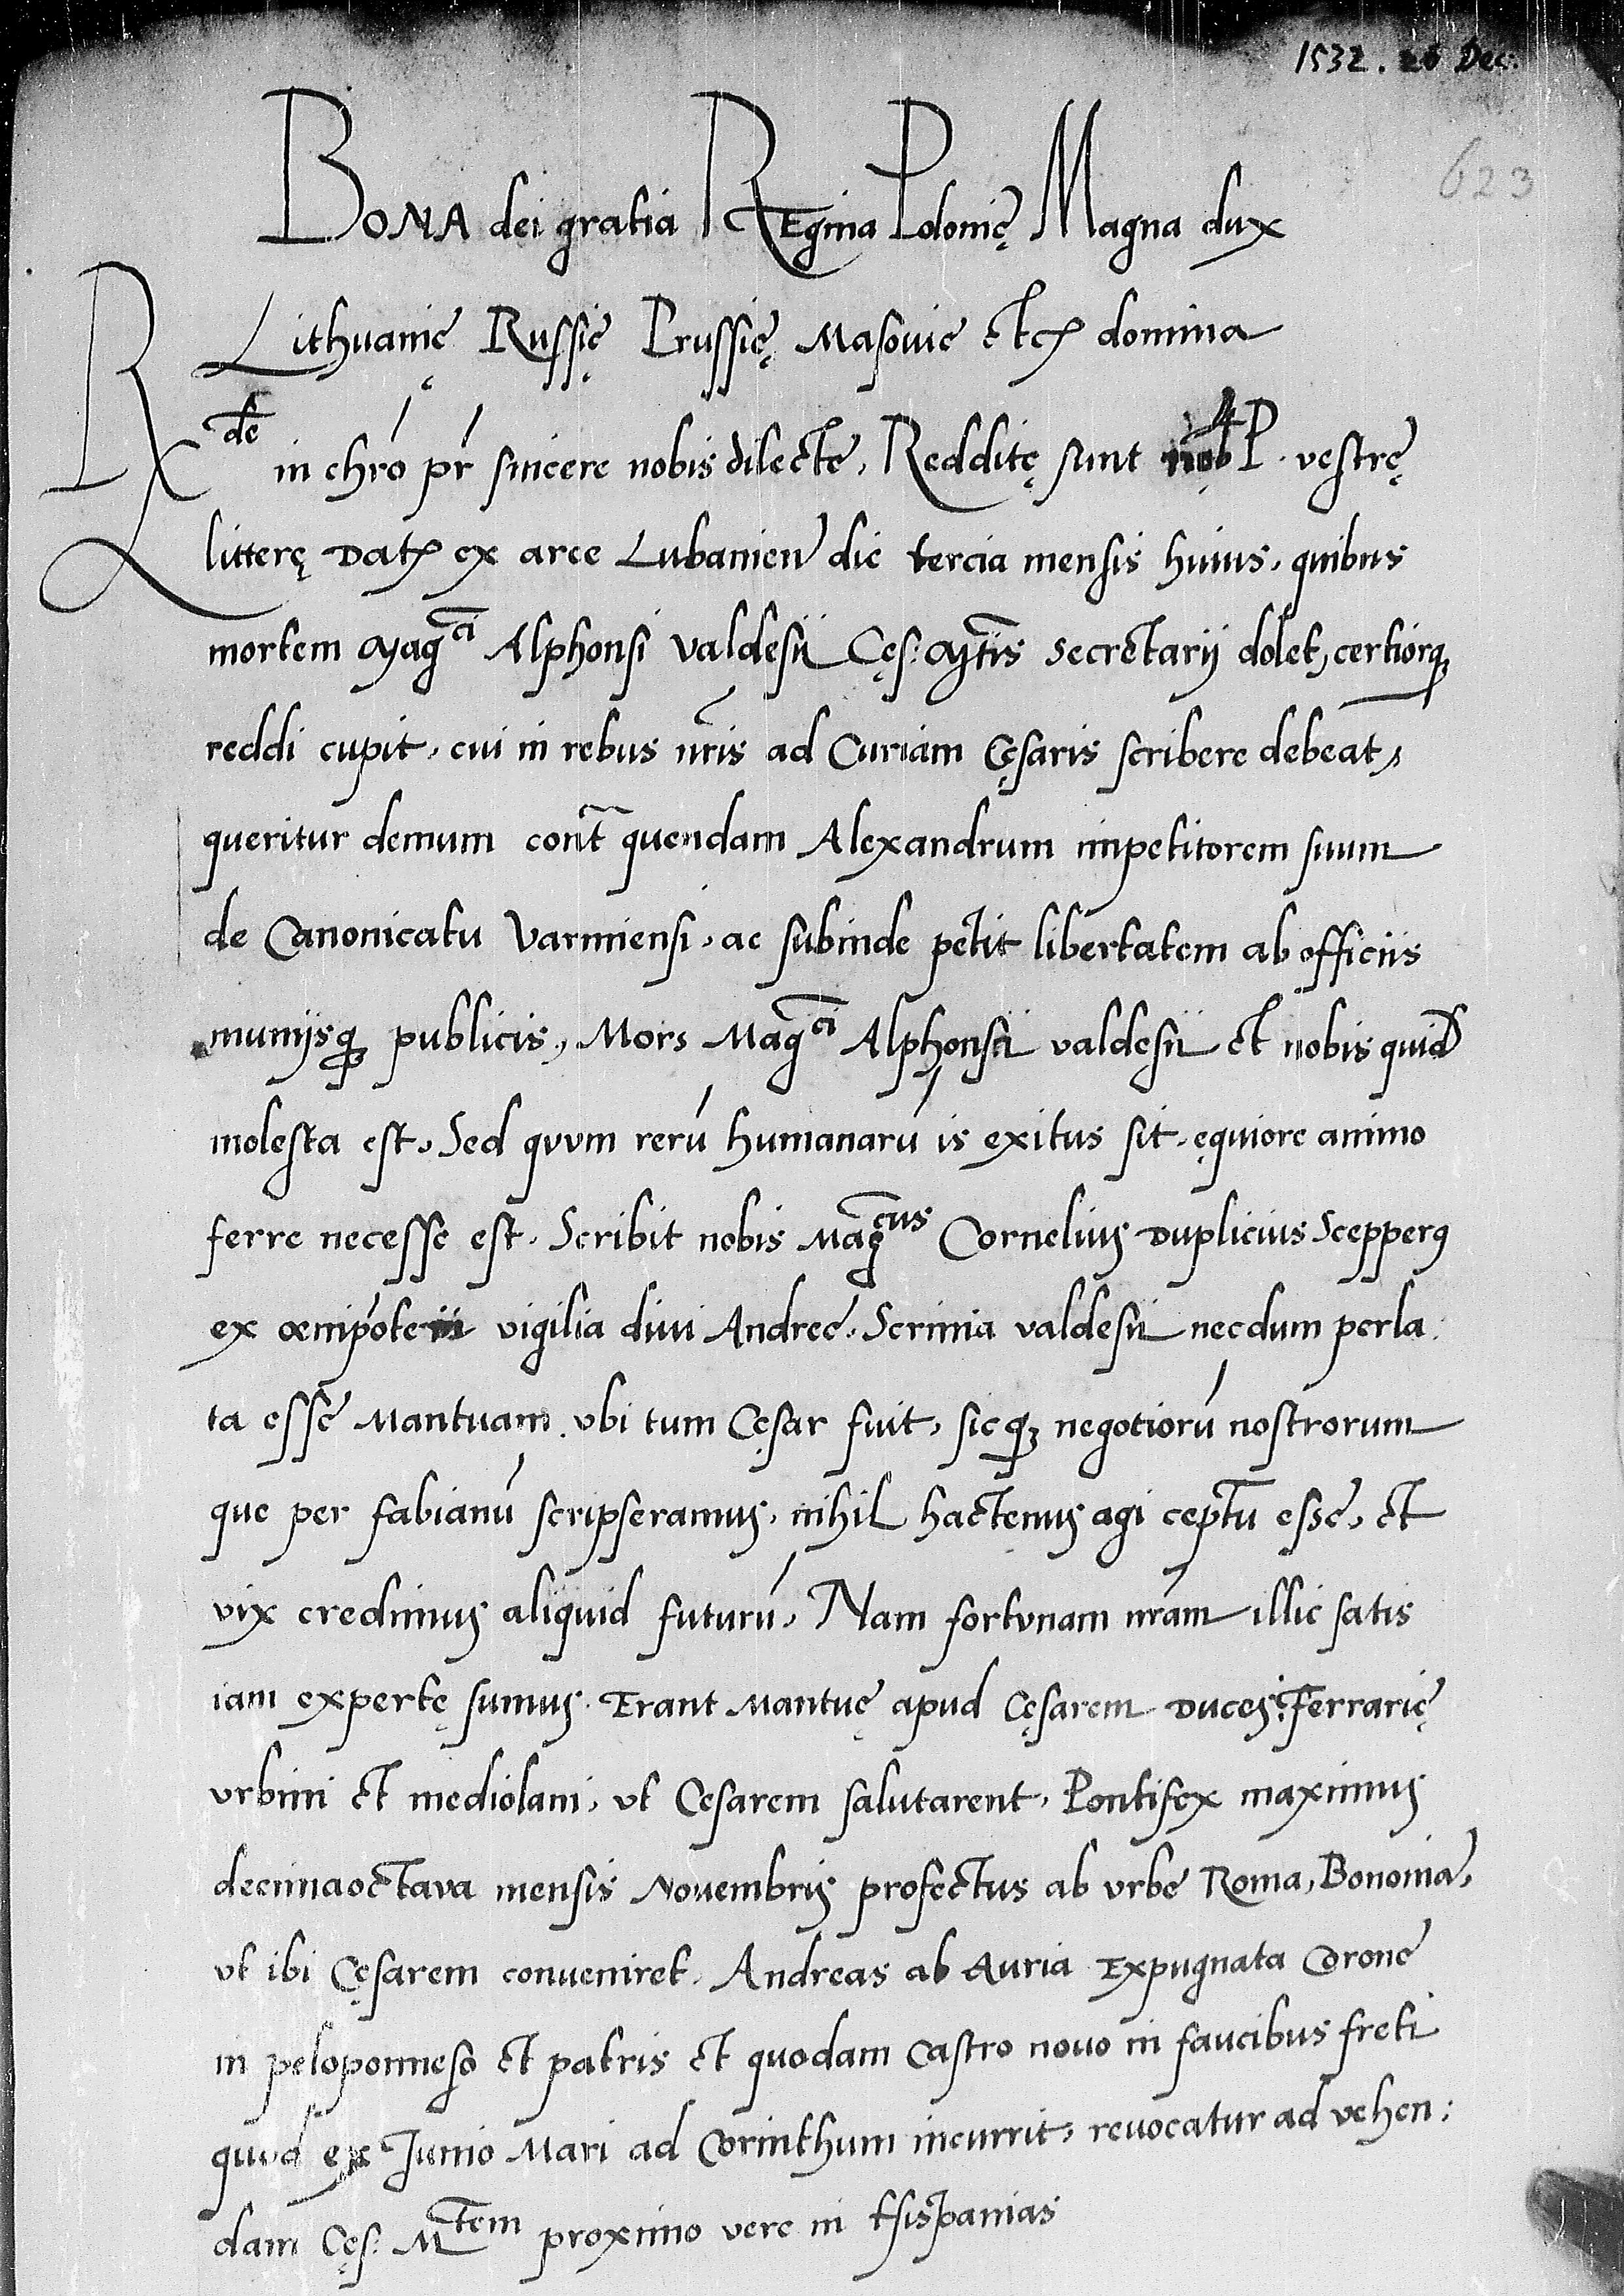 1532. 26 Dec.
623
BONA dei gratia REgina Polonię Magna dux
Lithvanię Russię Prussię Masovie etc domina
Rde in chro pr sincere nobis dilecte, Redditę sunt nob P. vestrę
litterę Dat ex arce Lubanien die tercia mensis huius, quibus
mortem Magci Alphonsi valdesii Cęs: Mtis Secretarii dolet, certiorq
reddi cupit, cui in rebus nris ad Curiam Cęsaris scribere debeat,
queritur demum cont quendam Alexandrum impetitorem suum
de Canonicatu Varmiensi, ac subinde petit libertatem ab officiis
muniisq publicis, Mors Magci Alphonsi valdesii et nobis quid
molesta est, Sed qvvm reru humanaru is exitus sit, ęquiore animo
ferre necesse est, Scribit nobis Magcus Cornelius Duplicius Scepperus
ex oeniponte vigilia divi Andreę, Scrinia valdesii necdum perla:
ta esse Mantuam, vbi tum Cęsar fuit, sicq negotioru nostrorum
que per fabianu scripseramus, nihil hactenus agi ceptu esse, et
vix credimus aliquid futuru, Nam fortvnam nram illic satis
iam expertę sumus. Erant Mantuę apud Cęsarem Duces: Ferrarię
vrbini et mediolani, ut Cesarem salutarent, Pontifex maximus
decimaoctava mensis Novembris profectus ab vrbe Roma, Bononia,
ut ibi Cęsarem conveniret. Andreas ab Auria Expugnata Corone
in peloponneso et patris et quodam Castro novo in faucibus freti
quod ex Junio Mari ad Corinthum incurrit, revocatur ad vehen:
dam Cęs: Mtem proximo vere in Hispanias